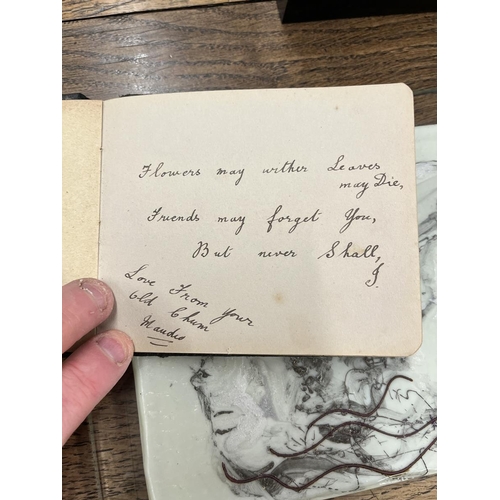 Flowers may wither Leaves
may Die,
Friends may forget You,
But never Shall,
I.
Love From Your
Old Chum
Maudie